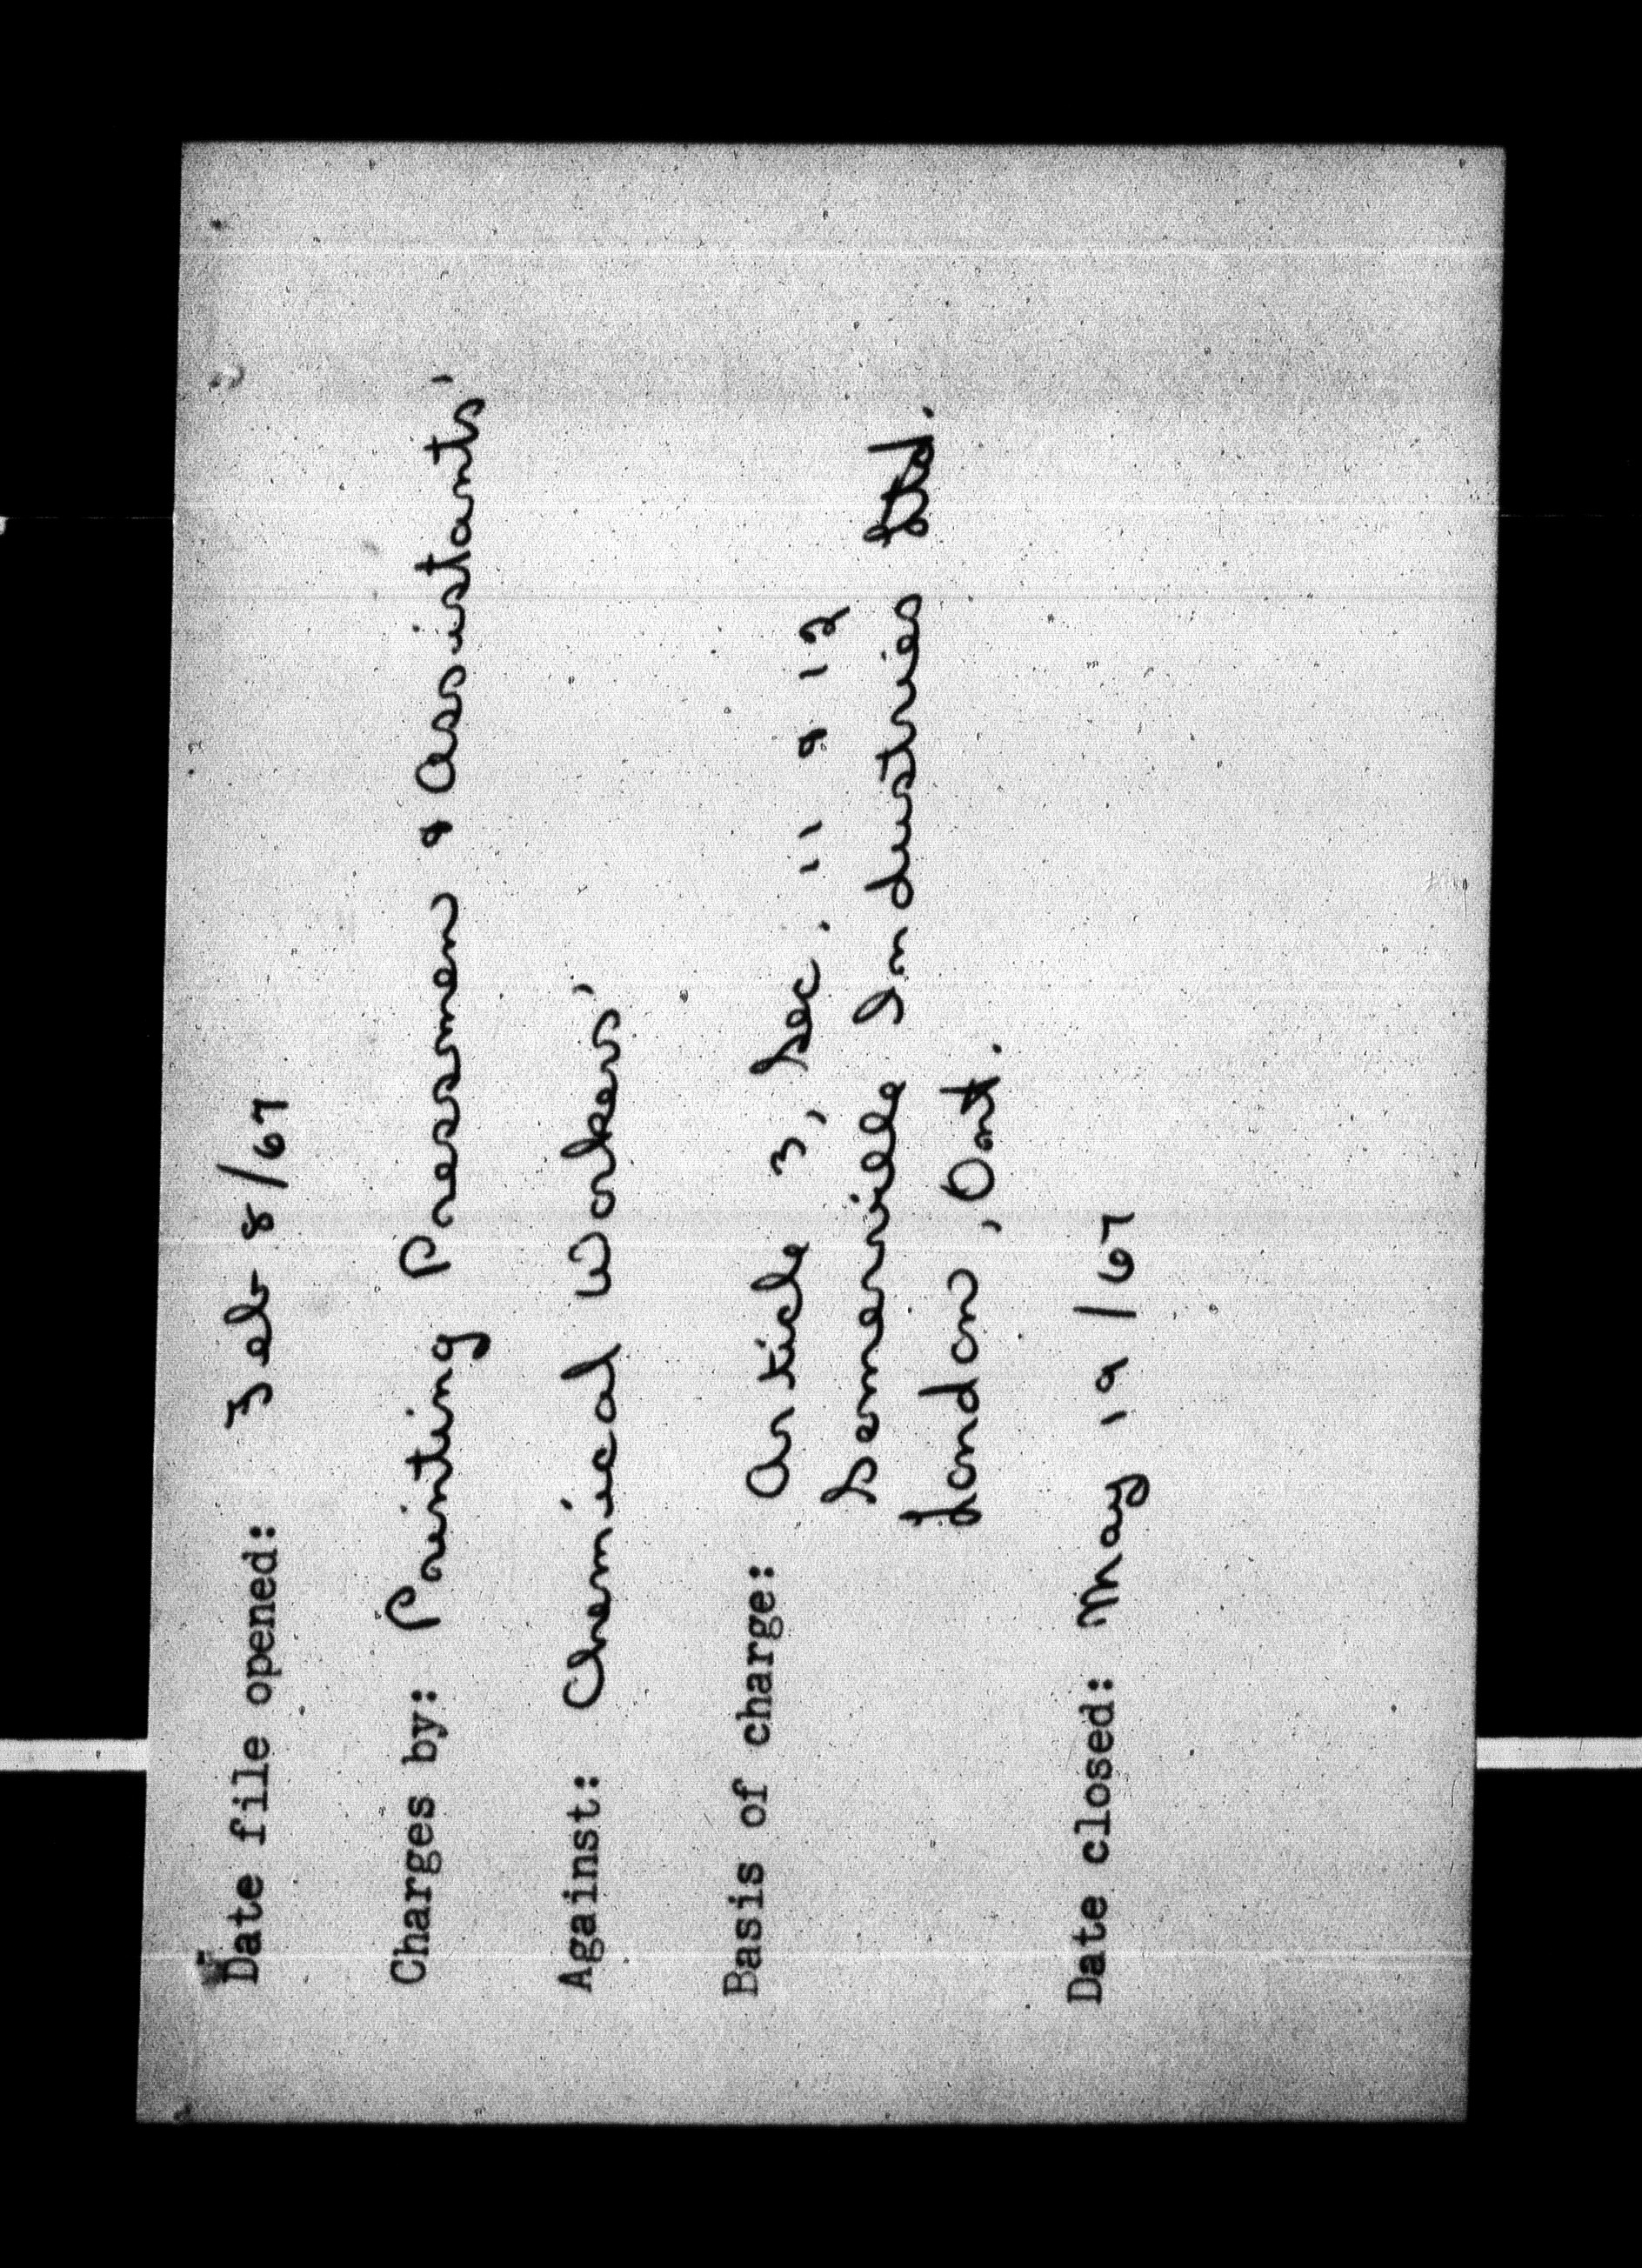 Date file opened: Feb 8/67
Charges by: Printing Pressmen & Assistants'
Against: Chemical Workers'
Basis of charge: Article 3, Sec. 11 & 12
Somerville Industries Ltd.
London, Ont.
Date closed: May 19/67